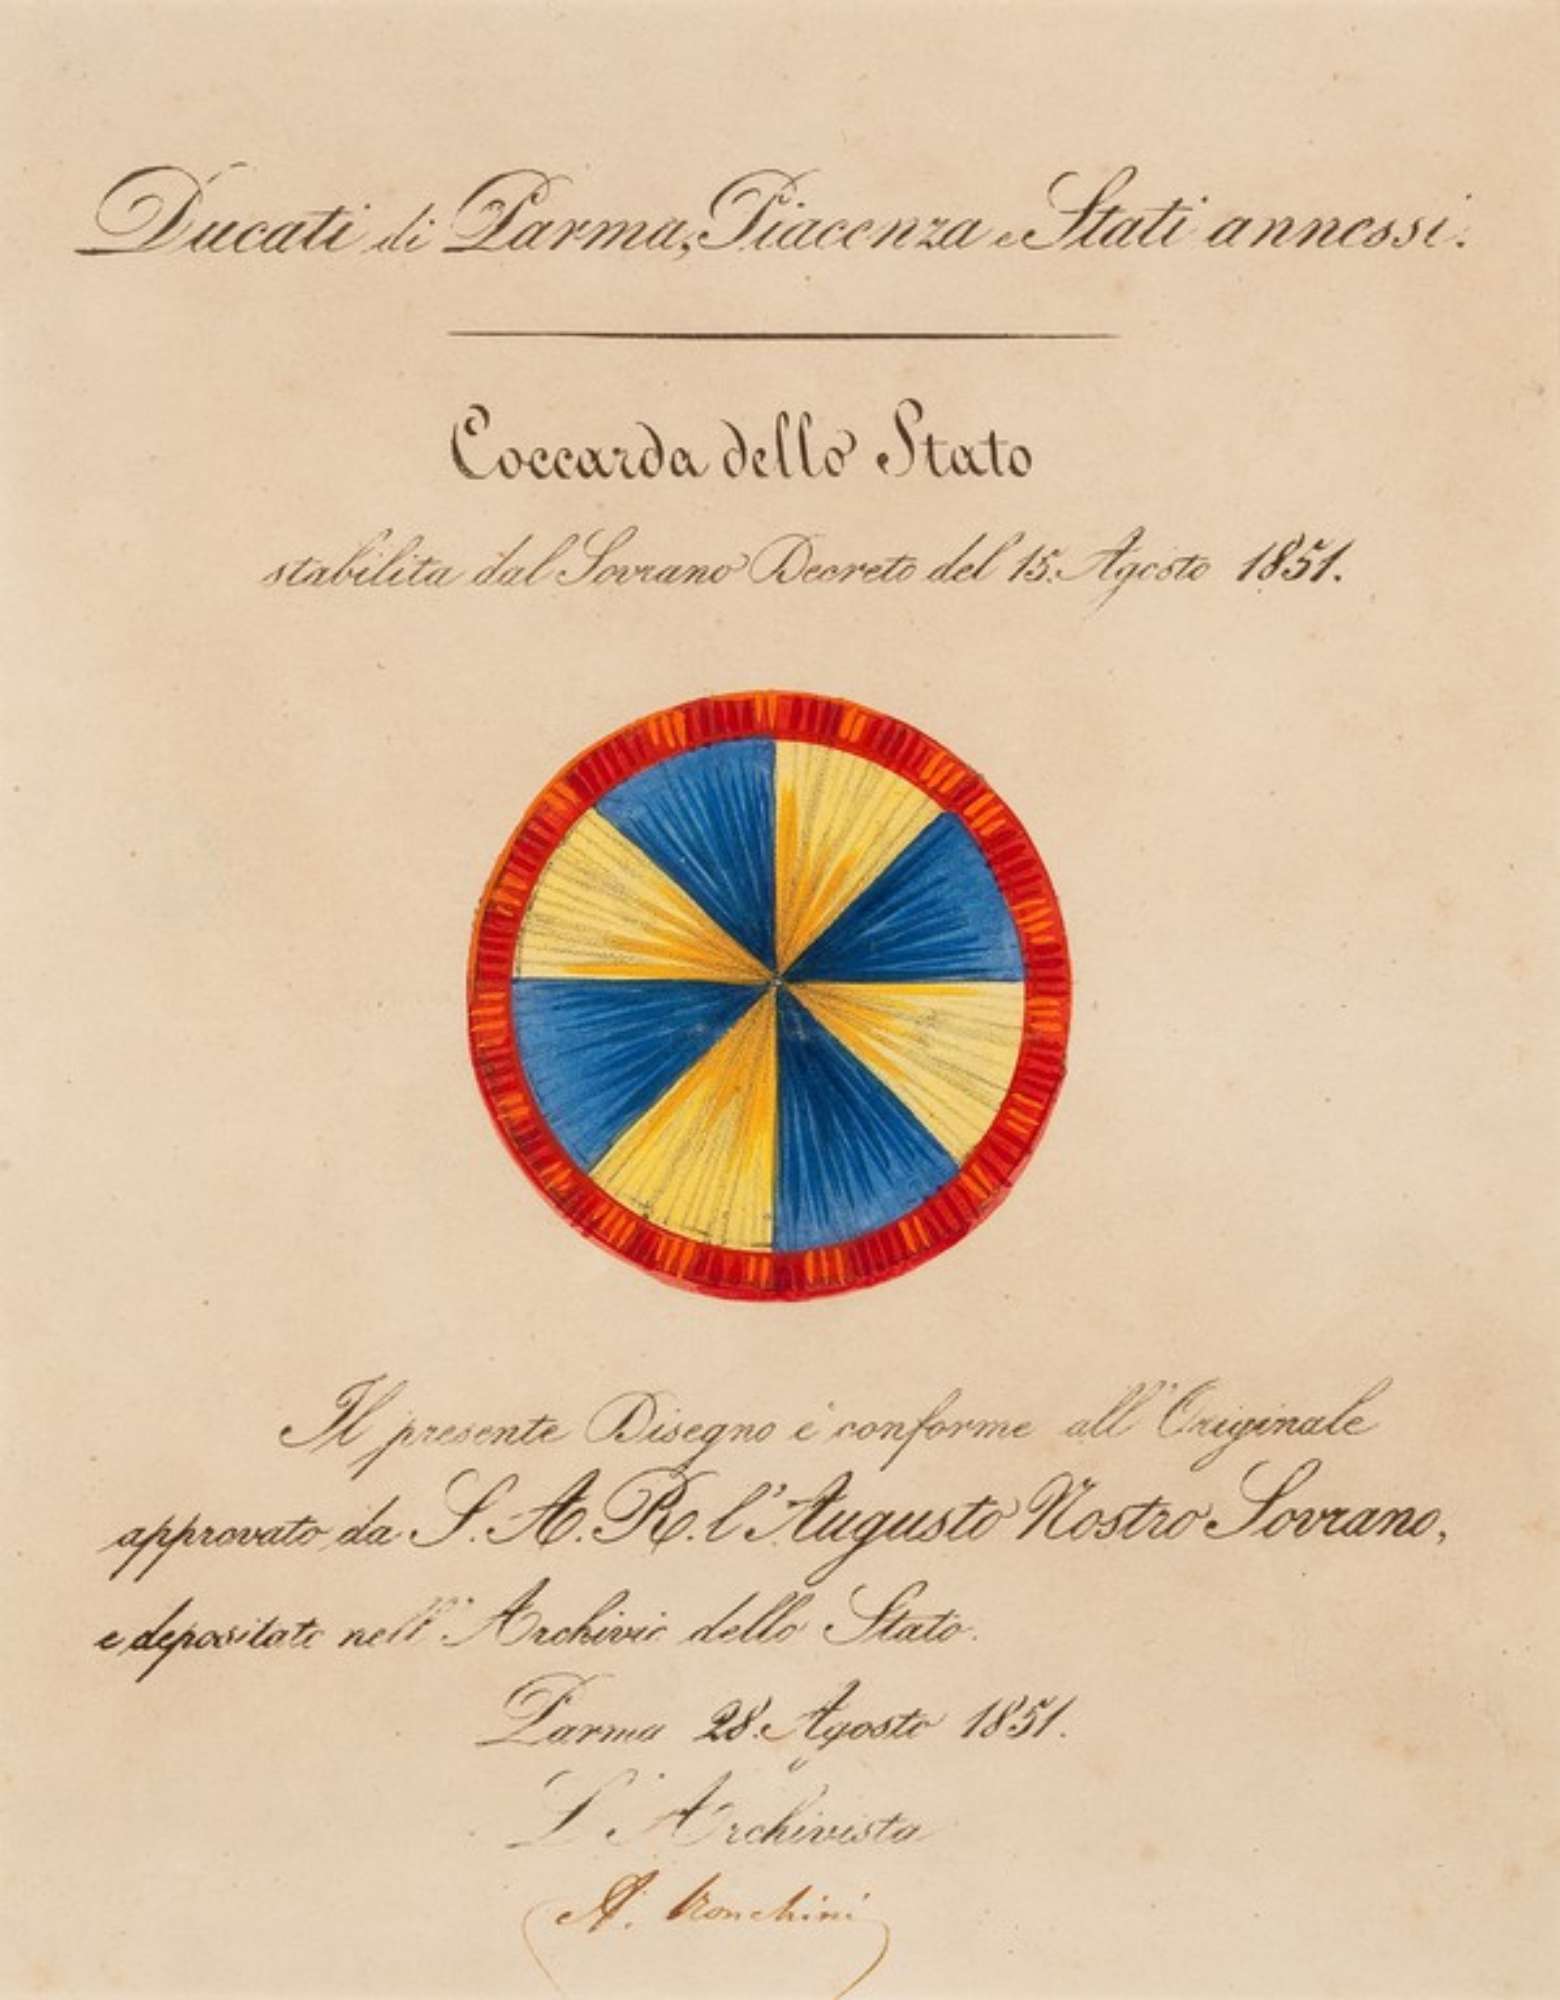 Ducati di Parma, Piacenza e Stati annessi.
Coccarda dello Stato
stabilita dal Sovrano Decreto del 15. Agosto 1851.
Il presente Disegno è conforme all'Originale
approvato da S. A. R. l'Augusto Nostro Sovrano,
e depositato nell'Archivio dello Stato.
Parma 28. Agosto 1851.
L'Archivista
A. Ronchini